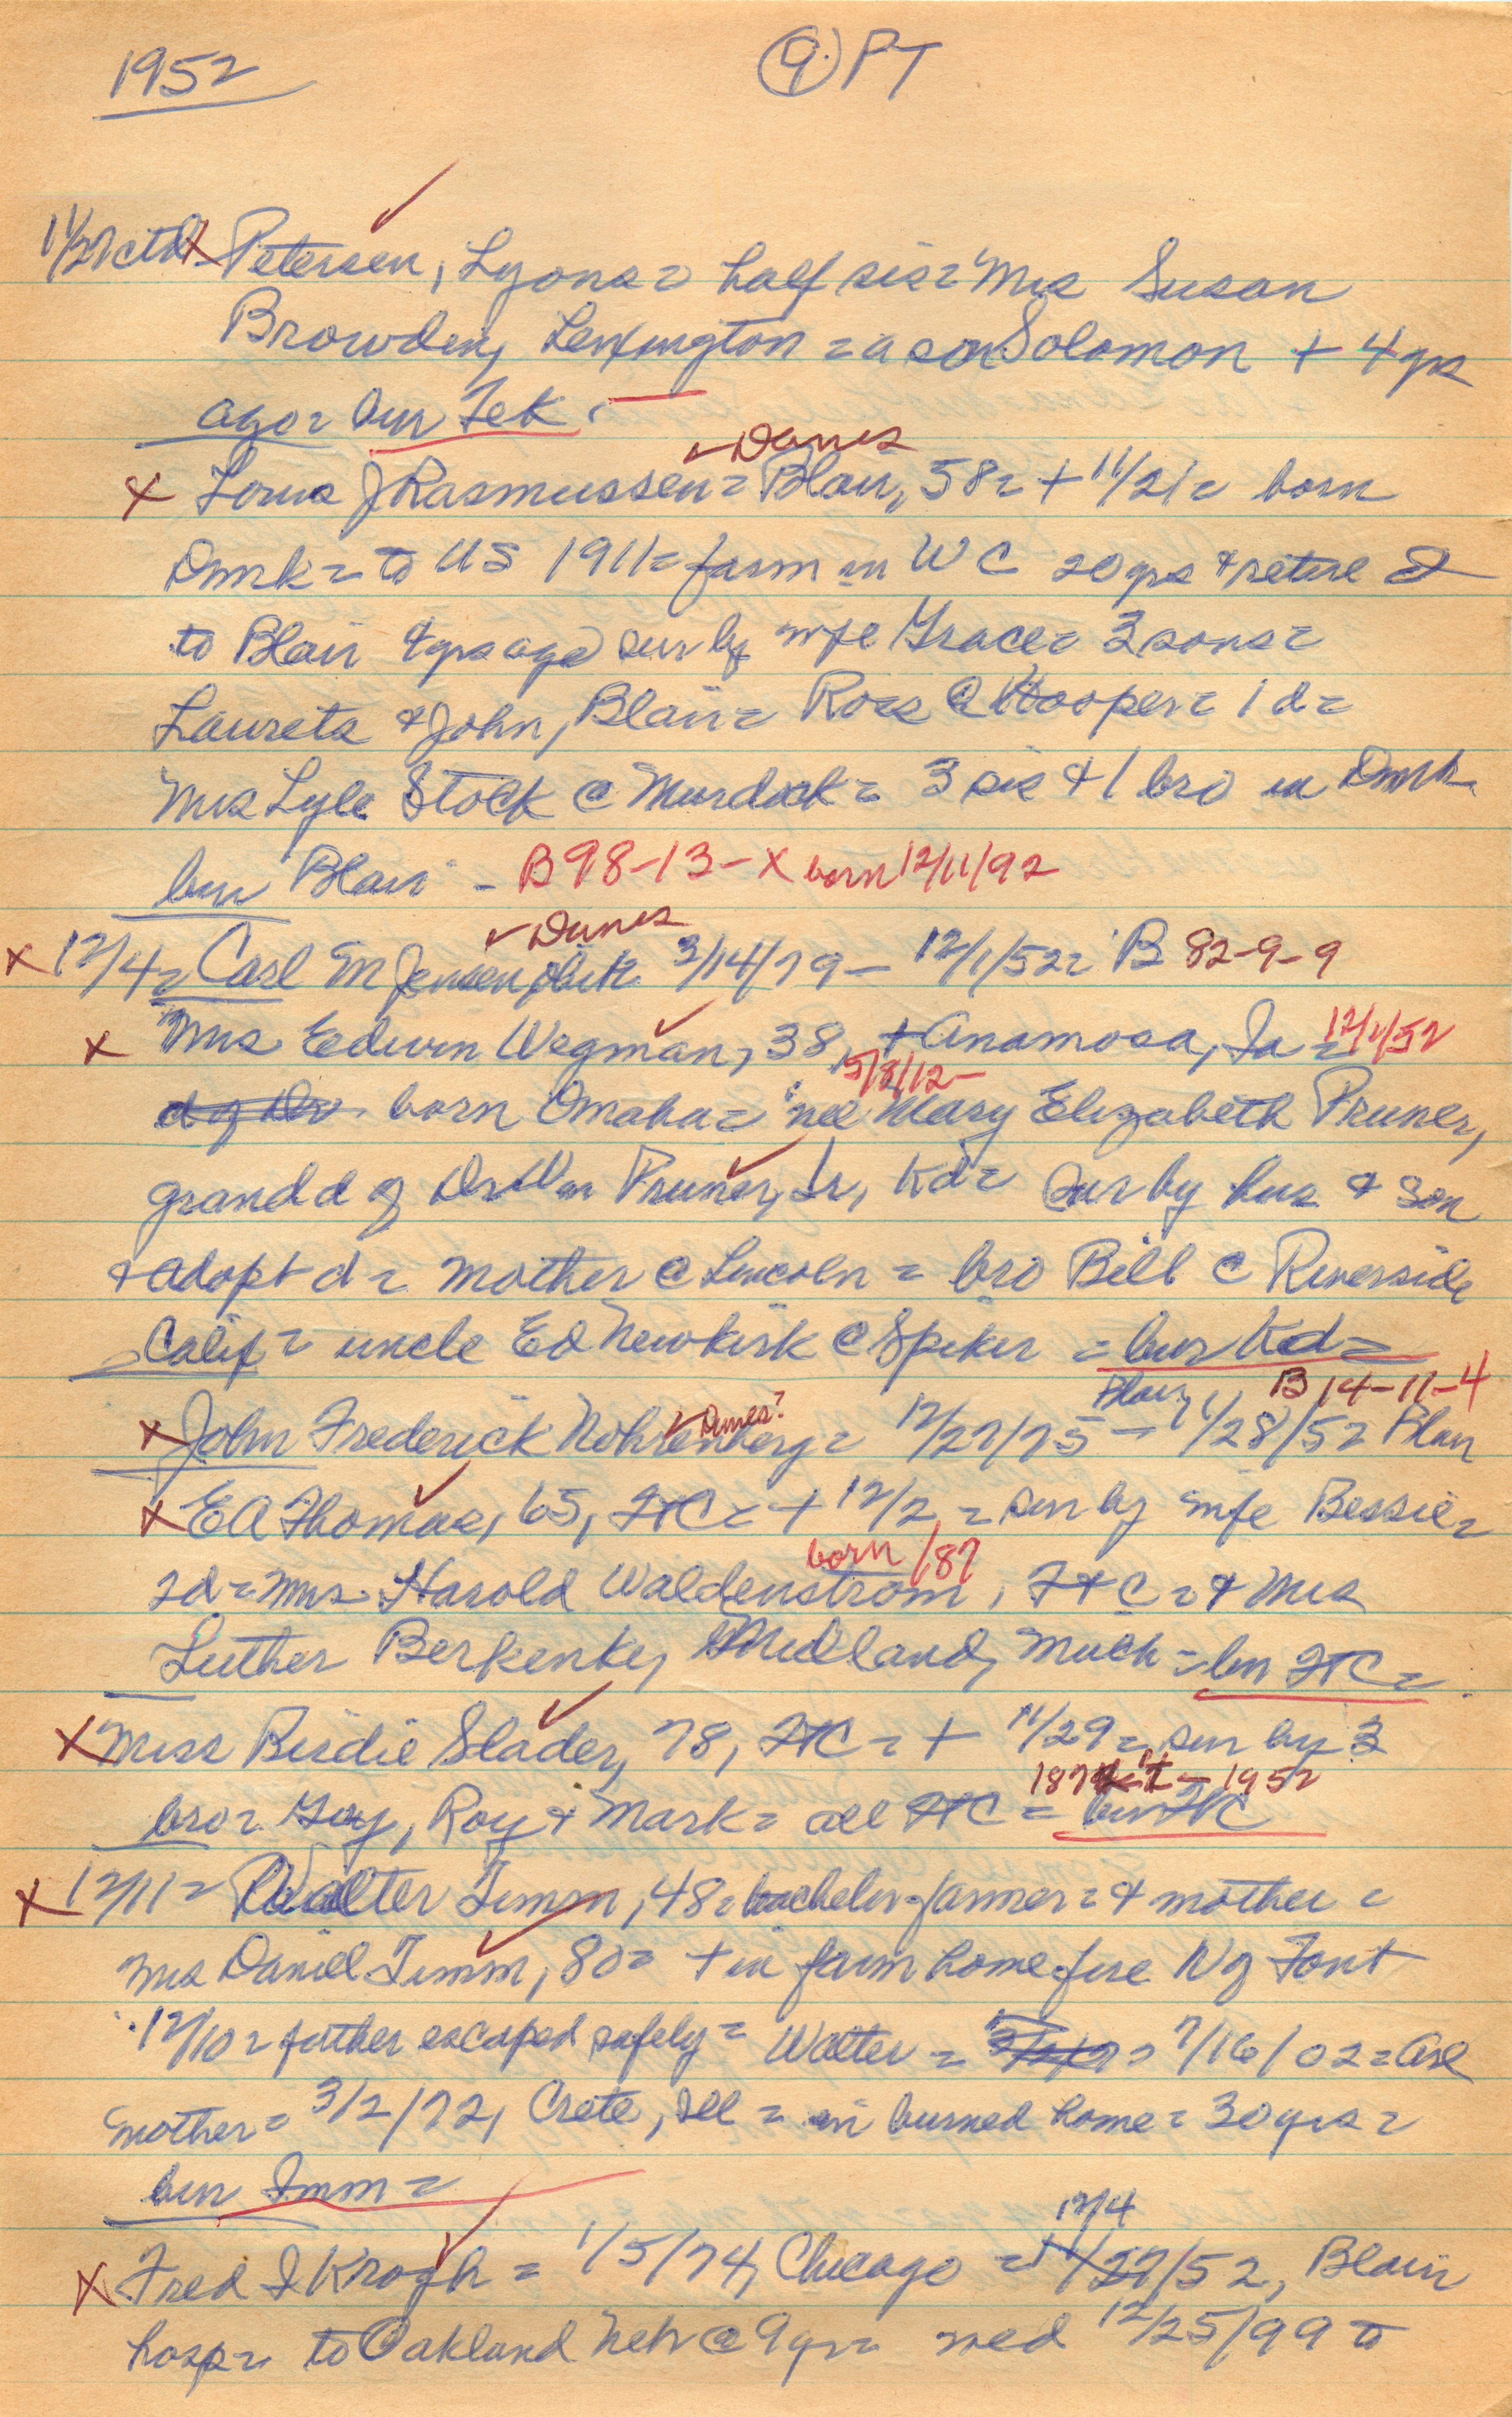 1952
9 PT
11/27 ctd X Petersen, Lyons = half sis = Mrs Susan
Browden, Lexington = a son Solomon + 4 yrs
ago = bur Tek.
✓ Danes
X Louis J Rasmussen = Blair, 58 = + 11/21 = born
Dmk = to US 1911 = farm in WC 20 yrs & retire
to Blair 9 yrs ago sur by wife Grace = 3 sons =
Laurets & John, Blair = Ross @ Hooper = 1 d =
Mrs Lyle Stock @ Murdock = 3 sis & 1 bro in Dmk
bur Blair - B98-13-X born 12/11/92
✓ Danes
X 12/4 = Carl M Jensen 3/14/79 - 12/1/52 = B 82-9-9
X Mrs Edwin Wegman, 38, + Anamosa, Ia = 12/1/52
5/8/12 -
d of Dr born Omaha = nee Mary Elizabeth Pruner,
grand d of Dr Wm Pruner, Sr, Kd = sur by hus & son
& adopt d = mother @ Lincoln = bro Bill @ Riverside
Calif = uncle Ed Newkirk @ Spiker = bur Kd =
Blair, B 14-11-4
✓ Danes?
X John Frederick Nohrenberg = 12/27/75 - 11/28/52 Blair
X EA Thomas, 65, FtC = + 12/2 = sur by wife Bessie =
born /87
2d = Mrs Harold Waldenstrom, Ft C = & Mrs
Luther Berkenke, Midland, Mich = bur FtC =
X Miss Birdie Slader, 78, FtC = + 11/29 = sur by 3
1874 - 1952
bro = Guy, Roy & Mark = all FtC = bur FtC
X 12/11 = Walter Timm, 48 = bachelor farmer = & mother =
Mrs Daniel Timm, 80 = + in farm home fire N of Font
12/10 = father escaped safely = Walter = 7/16/02 = Arl
mother = 3/2/72, Crete, Ill = in burned home = 30 yrs =
bur Imm =
12/4
X Fred I Krogh = 1/5/74, Chicago = 11/27/52, Blair
hosp = to Oakland Neb @ 9 yr = wed 12/25/99 to